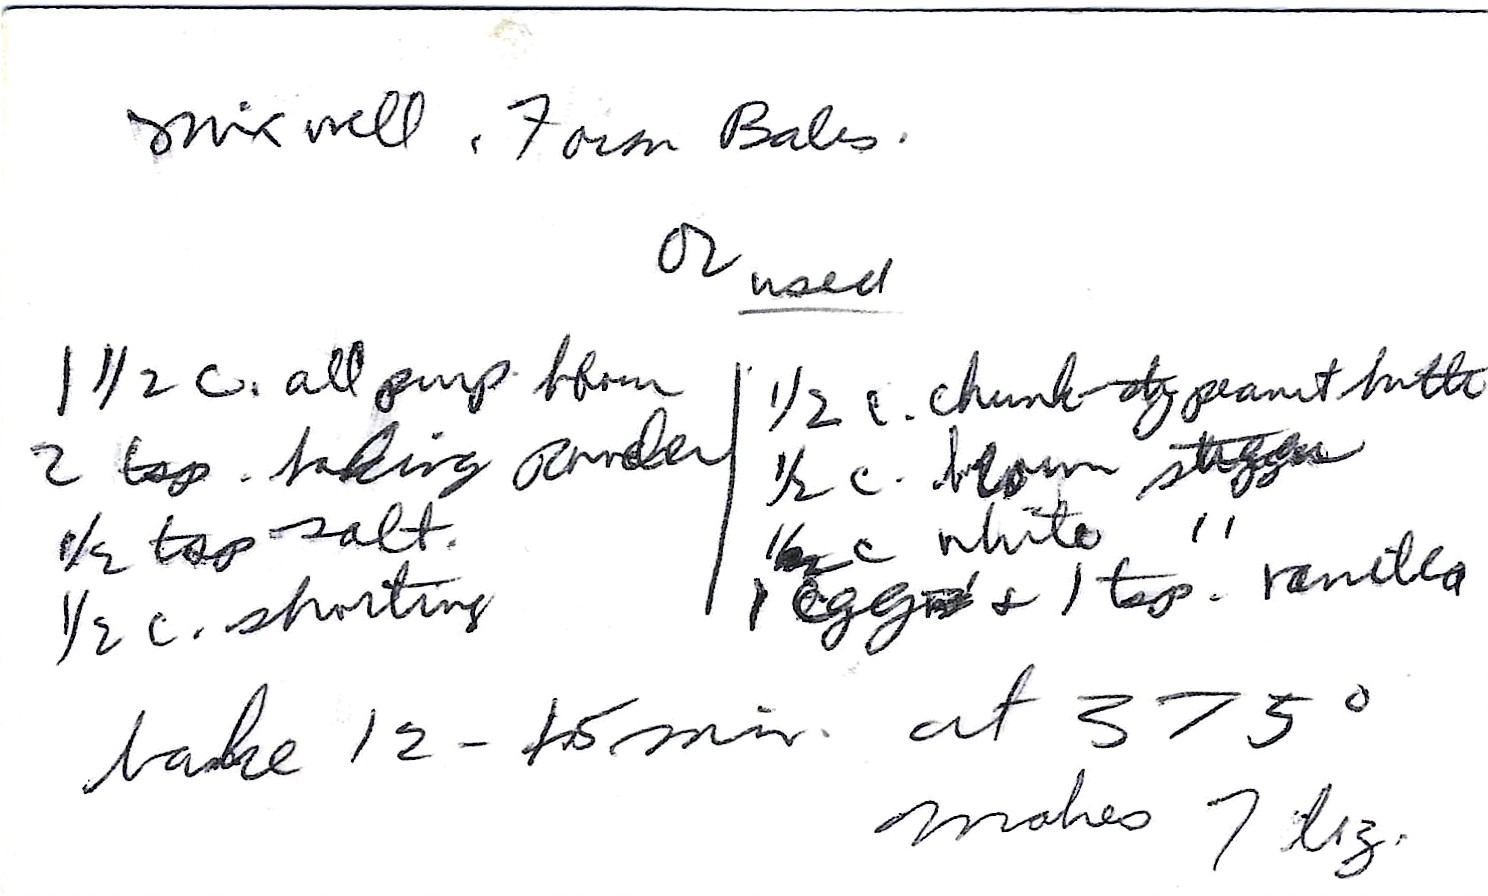 mix well. Form Balls.
or used
1 1/2 c. all purp. flour
2 tsp. baking powder
1/2 tsp salt.
1/2 c. shorting
1/2 c. chunk-dy peanut butte
1/2 c. brown
1/2 c white "
1 egg & 1 tsp. vanilla
bake 12 - 15 min. at 375°
makes 7 dz.